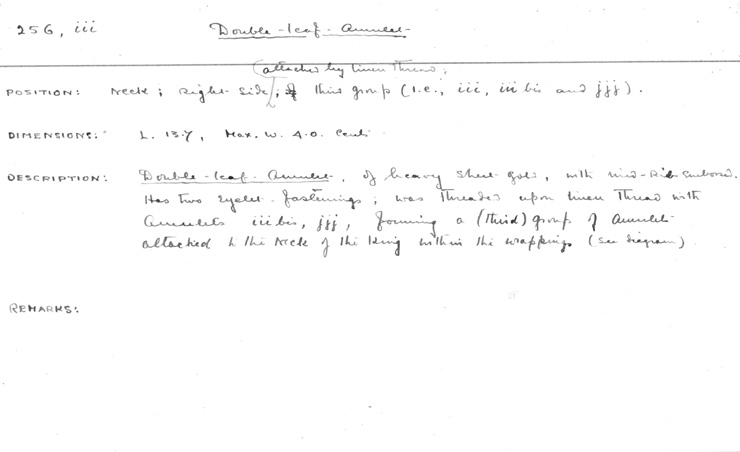 256, iii Double-leaf-Amulet-
(attached by linen thread;
POSITION: Neck; Right Side, third group (i.e., iii, iii bis and jjj).
DIMENSIONS: L. 13.7, Max. W. 4.0. Centi
DESCRIPTION: Double-leaf-Amulet, of heavy sheet-gold, with mid-Rib embossed.
Has two eyelet-fastenings; was threaded upon linen thread with
Amulets iii bis, jjj, forming a (third) group of Amulets
attached to the neck of the King within the wrappings (see diagram).
REMARKS: